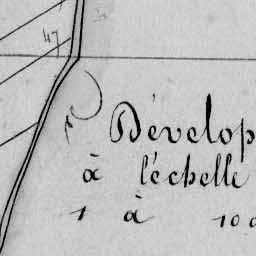 47
Dévelop
à l'échelle
1 à 100